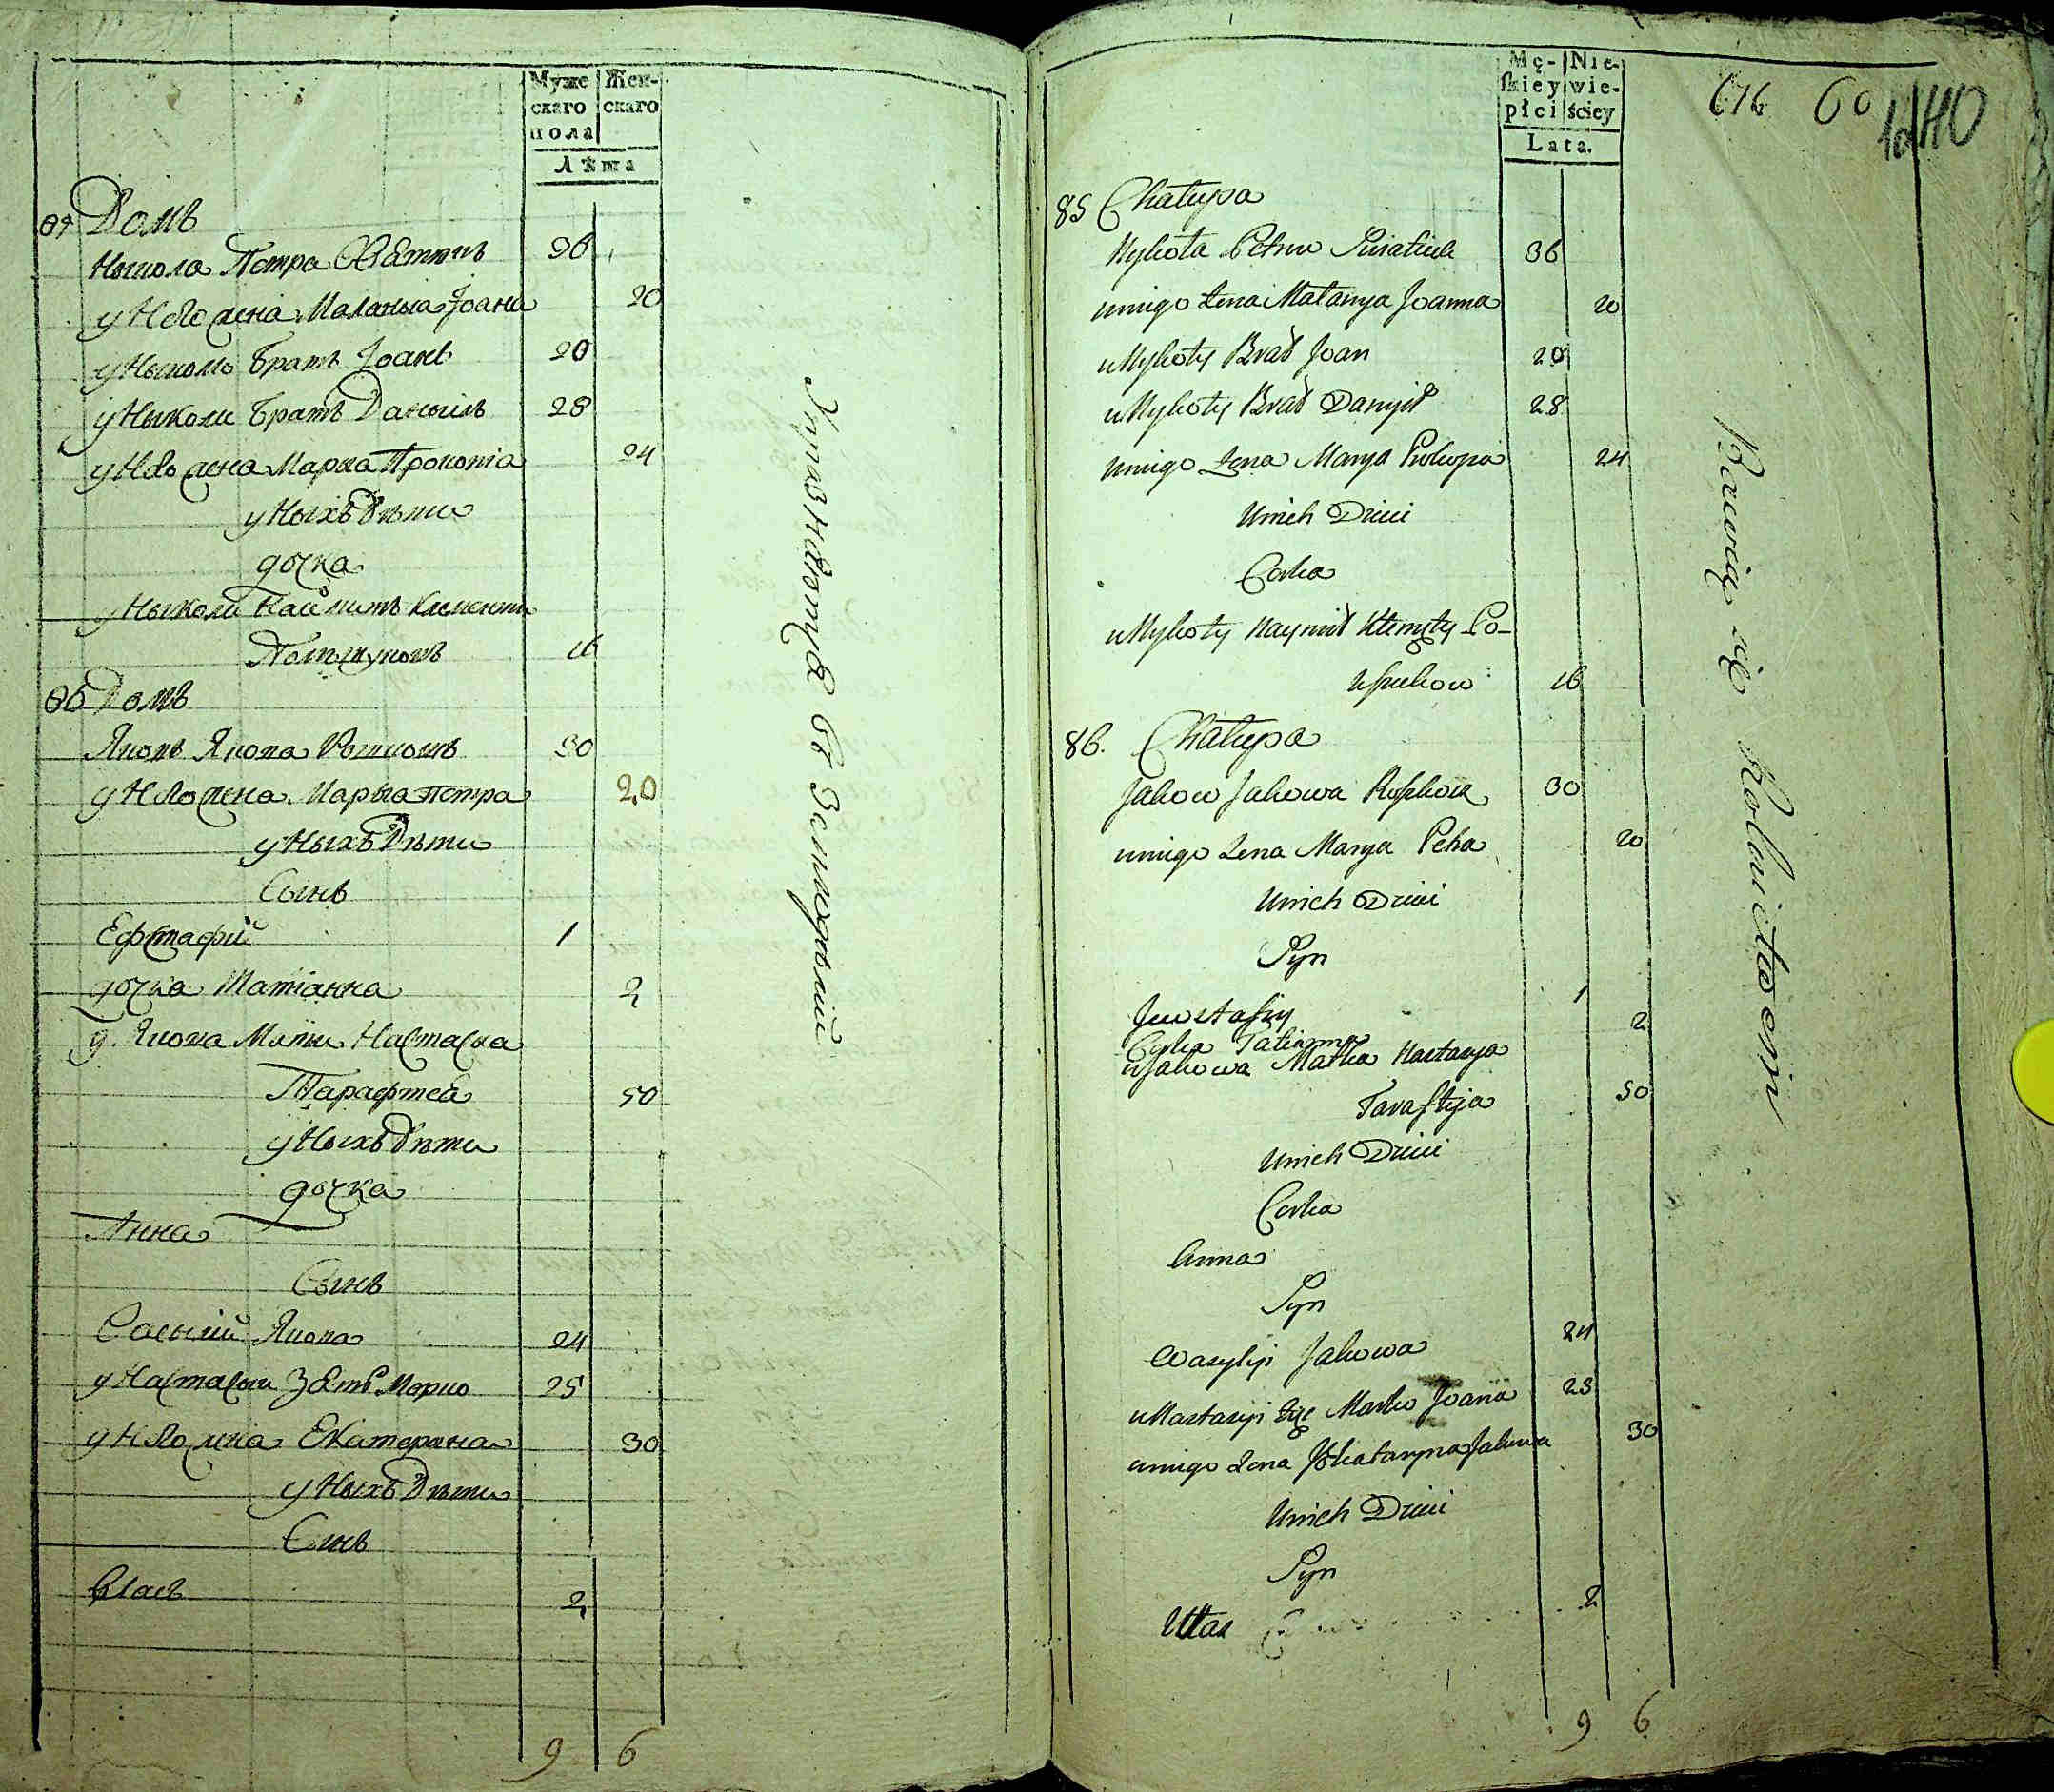 Муже Жен-
скаго скаго
пола
Лѣта
85 Домъ
Ныкола Петра Святюкъ 36
у Него жена Маланья Іоана 20
у Ныколы Братъ Іоанъ 20
у Ныколи Братъ Даныилъ 28
у Него жена Марья Прокопіа 24
у Ныхъ Дѣти
дочка
у Ныколи Наймитъ Клименти
16
86 Домъ
Яковъ Якова 30
у Него жена Марья Петра 20
у Ныхъ Дѣти
Сынъ
Ефстафій 1
дочка Татіанна 2
у Якова Мати Настасіа
Тарафтея 50
у Ныхъ Дѣти
дочка
Анна
Сынъ
Васылій Якова 24
у Настасыи Зять Марко 25
у Него жена Екатерина 30
у Ныхъ Дѣти
Сынъ
Власъ 2
9 6
Упражняются въ Земледѣліи
Mę- Nie-
skiey wie-
płci ściey
Lata.
616 60 140
85 Chałupa
Mykoła Petra Swiatiuk 36
uniego żena Małanya Joanna 20
u Mykoły Brat Joan 20
u Mykoły Brat Danyił 28
uniego żena Marya Prokopia 24
Unich Dzieci
Corka
u Mykoły Naymit Klimęty Po-
16
86. Chałupa
Jakow Jakowa 30
uniego żena Marya Petra 20
Unich Dzieci
Syn
Jewstafiy 1
Corka Tatianna 2
u Jakowa Matka Nastasya
Taraftija 50
Unich Dzieci
Corka
Anna
Syn
Wasylij Jakowa 24
u Nastasyi Zię Marko Joana 25
uniego żena Jekataryna Jakowa 30
Unich Dzieci
Syn
Ułas 2
9 6
Bawią się Rolnictwem